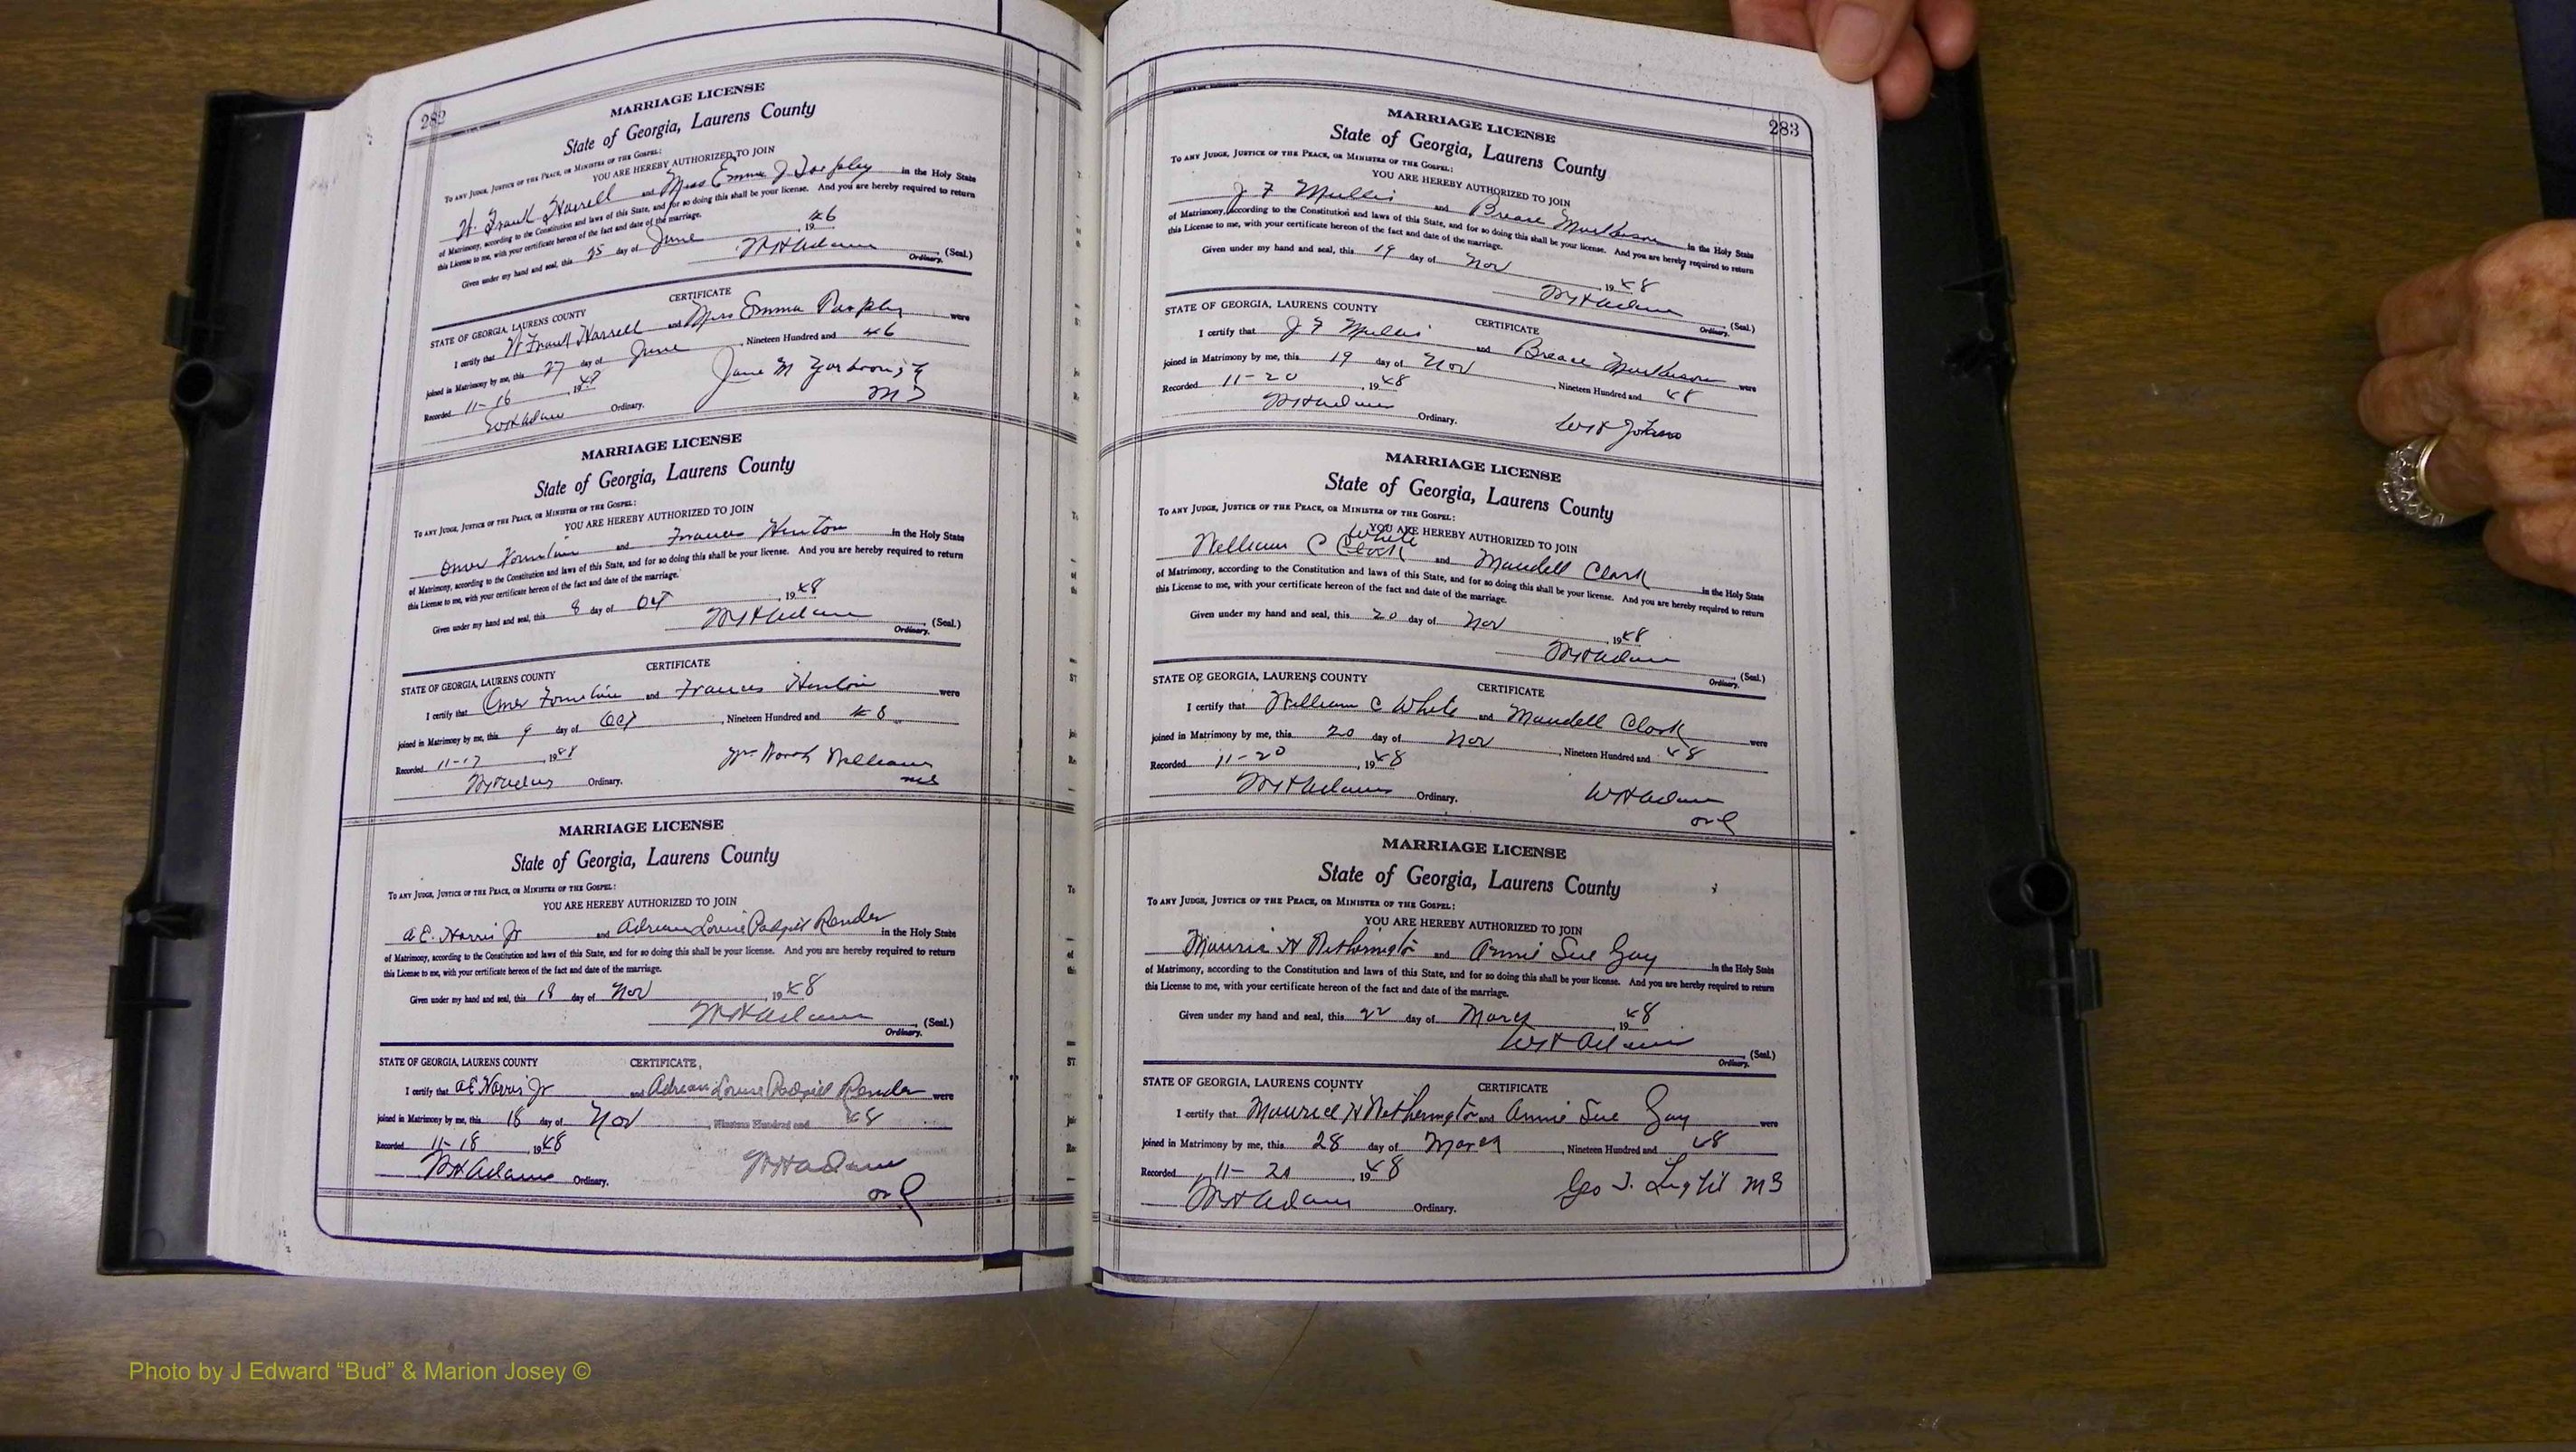 282
MARRIAGE LICENSE
State of Georgia, Laurens County
To any Judge, Justice of the Peace, or Minister of the Gospel:
YOU ARE HEREBY AUTHORIZED TO JOIN
W. Frank Harrell and Miss Emma J in the Holy State
of Matrimony, according to the Constitution and laws of this State, and for so doing this shall be your license. And you are hereby required to return
this License to me, with your certificate hereon of the fact and date of the marriage.
Given under my hand and seal, this 25 day of June, 1946
W H Adams (Seal.)
Ordinary.
CERTIFICATE
STATE OF GEORGIA, LAURENS COUNTY
I certify that W Frank Harrell and Miss Emma were
joined in Matrimony by me, this 27 day of June, Nineteen Hundred and 46
Recorded 11-16, 1948
W H Adams Ordinary.
MARRIAGE LICENSE
State of Georgia, Laurens County
To any Judge, Justice of the Peace, or Minister of the Gospel:
YOU ARE HEREBY AUTHORIZED TO JOIN
Omer and Frances Hinton in the Holy State
of Matrimony, according to the Constitution and laws of this State, and for so doing this shall be your license. And you are hereby required to return
this License to me, with your certificate hereon of the fact and date of the marriage.
Given under my hand and seal, this 8 day of Oct, 1948
W H Adams (Seal.)
Ordinary.
CERTIFICATE
STATE OF GEORGIA, LAURENS COUNTY
I certify that Omer and Frances Hinton were
joined in Matrimony by me, this 9 day of Oct, Nineteen Hundred and 48
Recorded 11-17, 1948
Williams
W H Adams Ordinary.
MARRIAGE LICENSE
State of Georgia, Laurens County
To any Judge, Justice of the Peace, or Minister of the Gospel:
YOU ARE HEREBY AUTHORIZED TO JOIN
A.E. Norris Jr and Adrean Louise Padgett Render in the Holy State
of Matrimony, according to the Constitution and laws of this State, and for so doing this shall be your license. And you are hereby required to return
this License to me, with your certificate hereon of the fact and date of the marriage.
Given under my hand and seal, this 18 day of Nov, 1948
W H Adams (Seal.)
Ordinary.
STATE OF GEORGIA, LAURENS COUNTY CERTIFICATE,
I certify that A.E. Norris Jr and Adrean Louise Padgett Render were
joined in Matrimony by me, this 18 day of Nov, Nineteen Hundred and 48
Recorded 11-18, 1948
W H Adams Ordinary.
W H Adams
Ord
283
MARRIAGE LICENSE
State of Georgia, Laurens County
To any Judge, Justice of the Peace, or Minister of the Gospel:
YOU ARE HEREBY AUTHORIZED TO JOIN
J F Mullis and in the Holy State
of Matrimony, according to the Constitution and laws of this State, and for so doing this shall be your license. And you are hereby required to return
this License to me, with your certificate hereon of the fact and date of the marriage.
Given under my hand and seal, this 19 day of Nov, 1948
W H Adams (Seal.)
Ordinary.
STATE OF GEORGIA, LAURENS COUNTY CERTIFICATE
I certify that J F Mullis and were
joined in Matrimony by me, this 19 day of Nov, Nineteen Hundred and 48
Recorded 11-20, 1948
W H Adams Ordinary.
MARRIAGE LICENSE
State of Georgia, Laurens County
To any Judge, Justice of the Peace, or Minister of the Gospel:
YOU ARE HEREBY AUTHORIZED TO JOIN
White
William C Clark and Maudell Clark in the Holy State
of Matrimony, according to the Constitution and laws of this State, and for so doing this shall be your license. And you are hereby required to return
this License to me, with your certificate hereon of the fact and date of the marriage.
Given under my hand and seal, this 20 day of Nov, 1948
W H Adams (Seal.)
Ordinary.
STATE OF GEORGIA, LAURENS COUNTY CERTIFICATE
I certify that William C White and Maudell Clark were
joined in Matrimony by me, this 20 day of Nov, Nineteen Hundred and 48
Recorded 11-20, 1948
W H Adams Ordinary.
W H Adams
Ord
MARRIAGE LICENSE
State of Georgia, Laurens County
To any Judge, Justice of the Peace, or Minister of the Gospel:
YOU ARE HEREBY AUTHORIZED TO JOIN
Maurice H Netherington and Annie Sue Gay in the Holy State
of Matrimony, according to the Constitution and laws of this State, and for so doing this shall be your license. And you are hereby required to return
this License to me, with your certificate hereon of the fact and date of the marriage.
Given under my hand and seal, this 22 day of March, 1948
W H Adams (Seal.)
Ordinary.
STATE OF GEORGIA, LAURENS COUNTY CERTIFICATE
I certify that Maurice H Netherington and Annie Sue Gay were
joined in Matrimony by me, this 28 day of March, Nineteen Hundred and 48
Recorded 11-20, 1948
Geo
W H Adams Ordinary.
Photo by J Edward “Bud” & Marion Josey ©